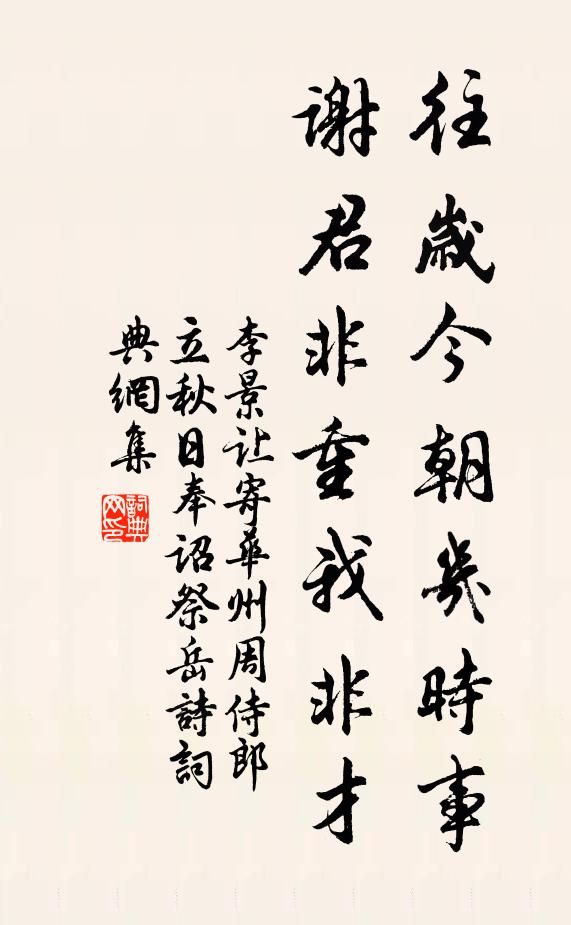 往歲今朝幾時事
謝君非重我非才
李景让寄華州周侍郎
立秋日奉诏祭岳詩詞
典網集
詞典
网印